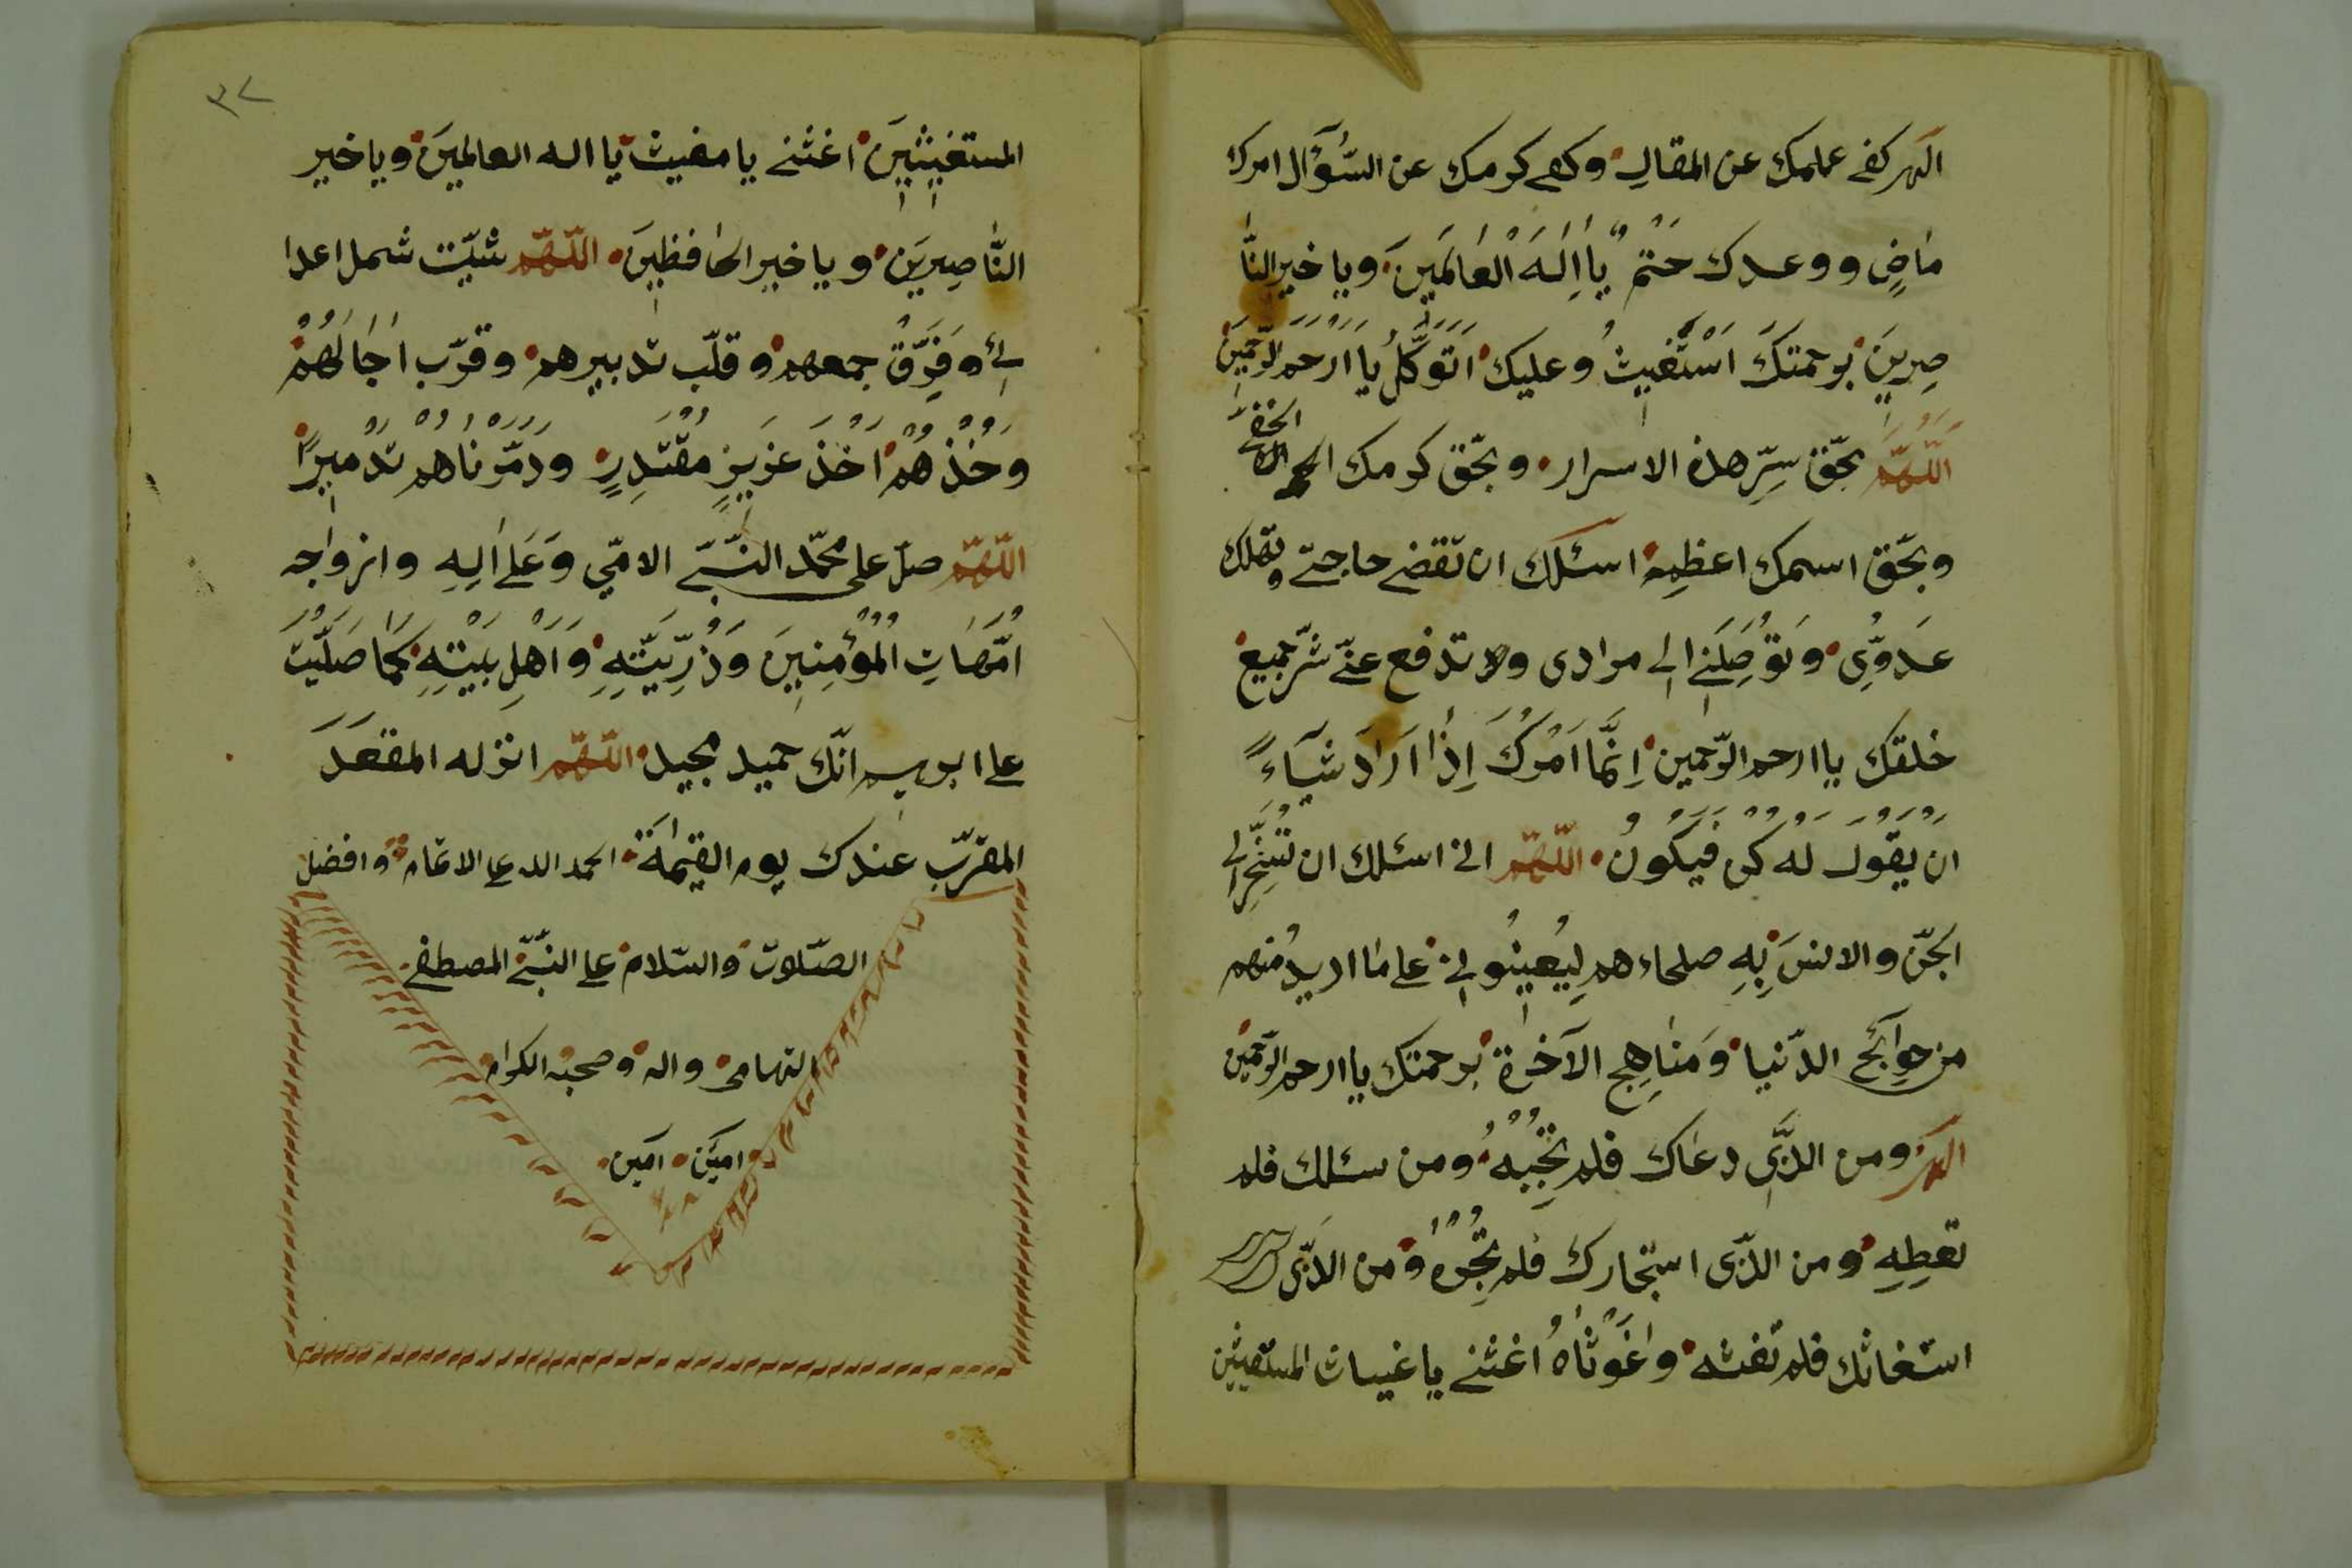 الهى كفى علمك عن المقالِ وكفى كرمك عن السُّؤَال امرك
مَاضٍ ووعدك حَتْمٌ يَا اِلٰهَ الْعَالَمِينَ وياخير النَّا
صِرِينَ برحمتكَ اَسْتَغِيثُ وعليك اَتَوَكَّلُ يا اَرْحم الرّحمينَ
اَللّٰهُمَّ بحقّ سِرّ هذه الاسرار وبحقّ كرمك الخفى
وبحقّ اسمك اعظمِ اسئلك ان تقضى حاجتى وتهلك
عَدَوِّى وَتُوَصِلَنِى الى مرادى ولا تدفع عنّى شرّ جميع
خلقك يا ارحم الرّحمين اِنَّمَا اَمْرُكَ اِذَا اَرَادَ شَيْاءً
ان يَقُولَ لَهُ كُن فَيَكُونُ اللّهمّ انى اسئلك ان تُسَخِّرَ لى
الجنّ والانسَ بِهِ صلحاءهم لِيُعِينُو لى على مَا اريدُ منهم
من حوَائج الدّنيا وَمنَاهِج الآخرة برحمتك يا ارحم الرّحمين
الهى ومن الذّى دعَاك فلم تُجِبْهُ ومن سئلك فلم
تعطِهِ ومن الذّى استجارك فلم تُجِرْهُ ومن الذّى
استغاثك فلم تغثه وَاغَوْثَاهُ اغثنى يا غياث المستغيثين
٣٧
المستغِيثِينَ اغثنى يا مغيث يا اله العالمينَ وياخير
النَّاصِرِينَ وياخير الحَافظِينَ اللّهمّ شتّت شمل اعدا
ئى وَفَرِّقْ جمعهم وقلّب تدبيرهم وقرّب اٰجَالَهُمْ
وَخُذْهُمْ اَخْذَ عَزِيزٍ مُقْتَدِرٍ وَدَمَّرْنَاهُمْ تَدْمِيرًا
اللّهمّ صلّ على محمّد النّبىّ الامّي وَعَلى اٰلِهِ وازواجه
امّهَاتِ الْمُؤْمِنِينَ وَذُرِّيَّتِهِ وَاَهْلِ بَيْتِهِ كَمَا صَلَّيْتَ
على ابرهيم انّك حميد مجيد اللّهمّ انزله المقعَدَ
المقرّب عندك يوم القيٰمَة الحمد الله على الاتمام وافضل
الصّلوت والسّلام على النّبىّ المصطفى
التهامى واله وصحبه الكرام
امين امين